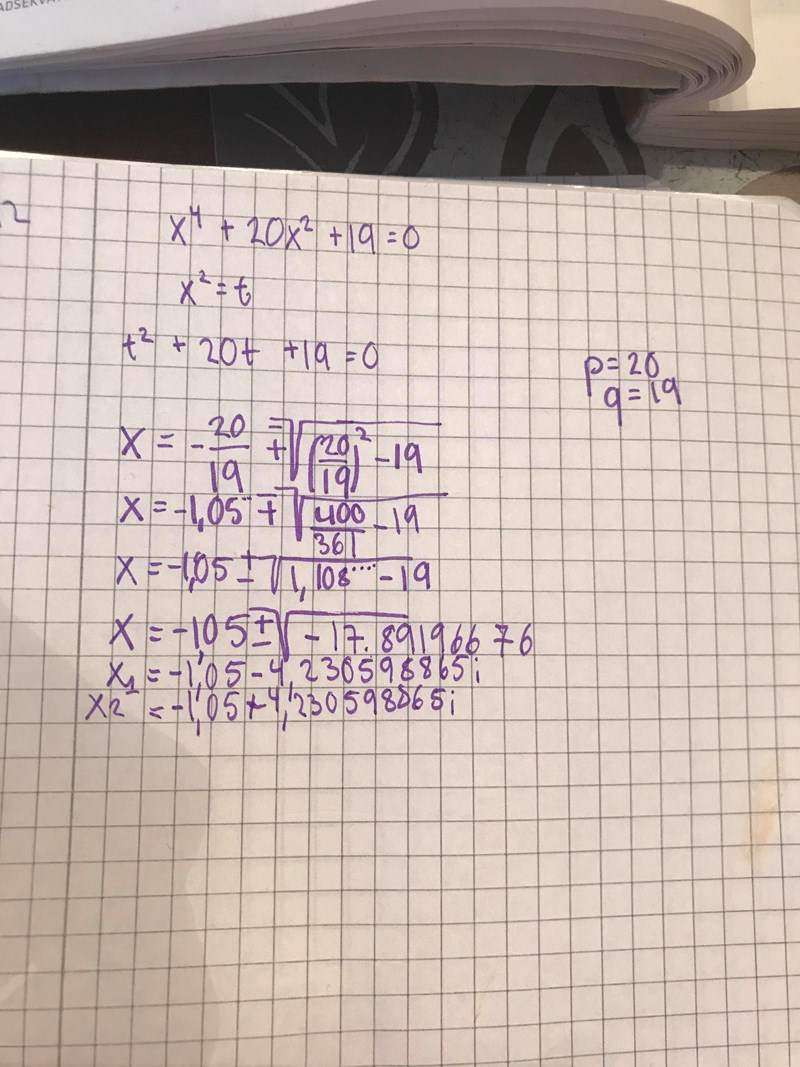 ADSERVA
2
x⁴ + 20x² + 19 = 0
x² = t
t² + 20t + 19 = 0
p = 20
q = 19
x = -20/19 ± √((20/19)² - 19)
x = -1,05 ± √(400/361 - 19)
x = -1,05 ± √(1,108.... - 19)
x = -1,05 ± √(-17.89196676)
x₁ = -1,05 - 4,230598865i
x2 = -1,05 + 4,230598865i